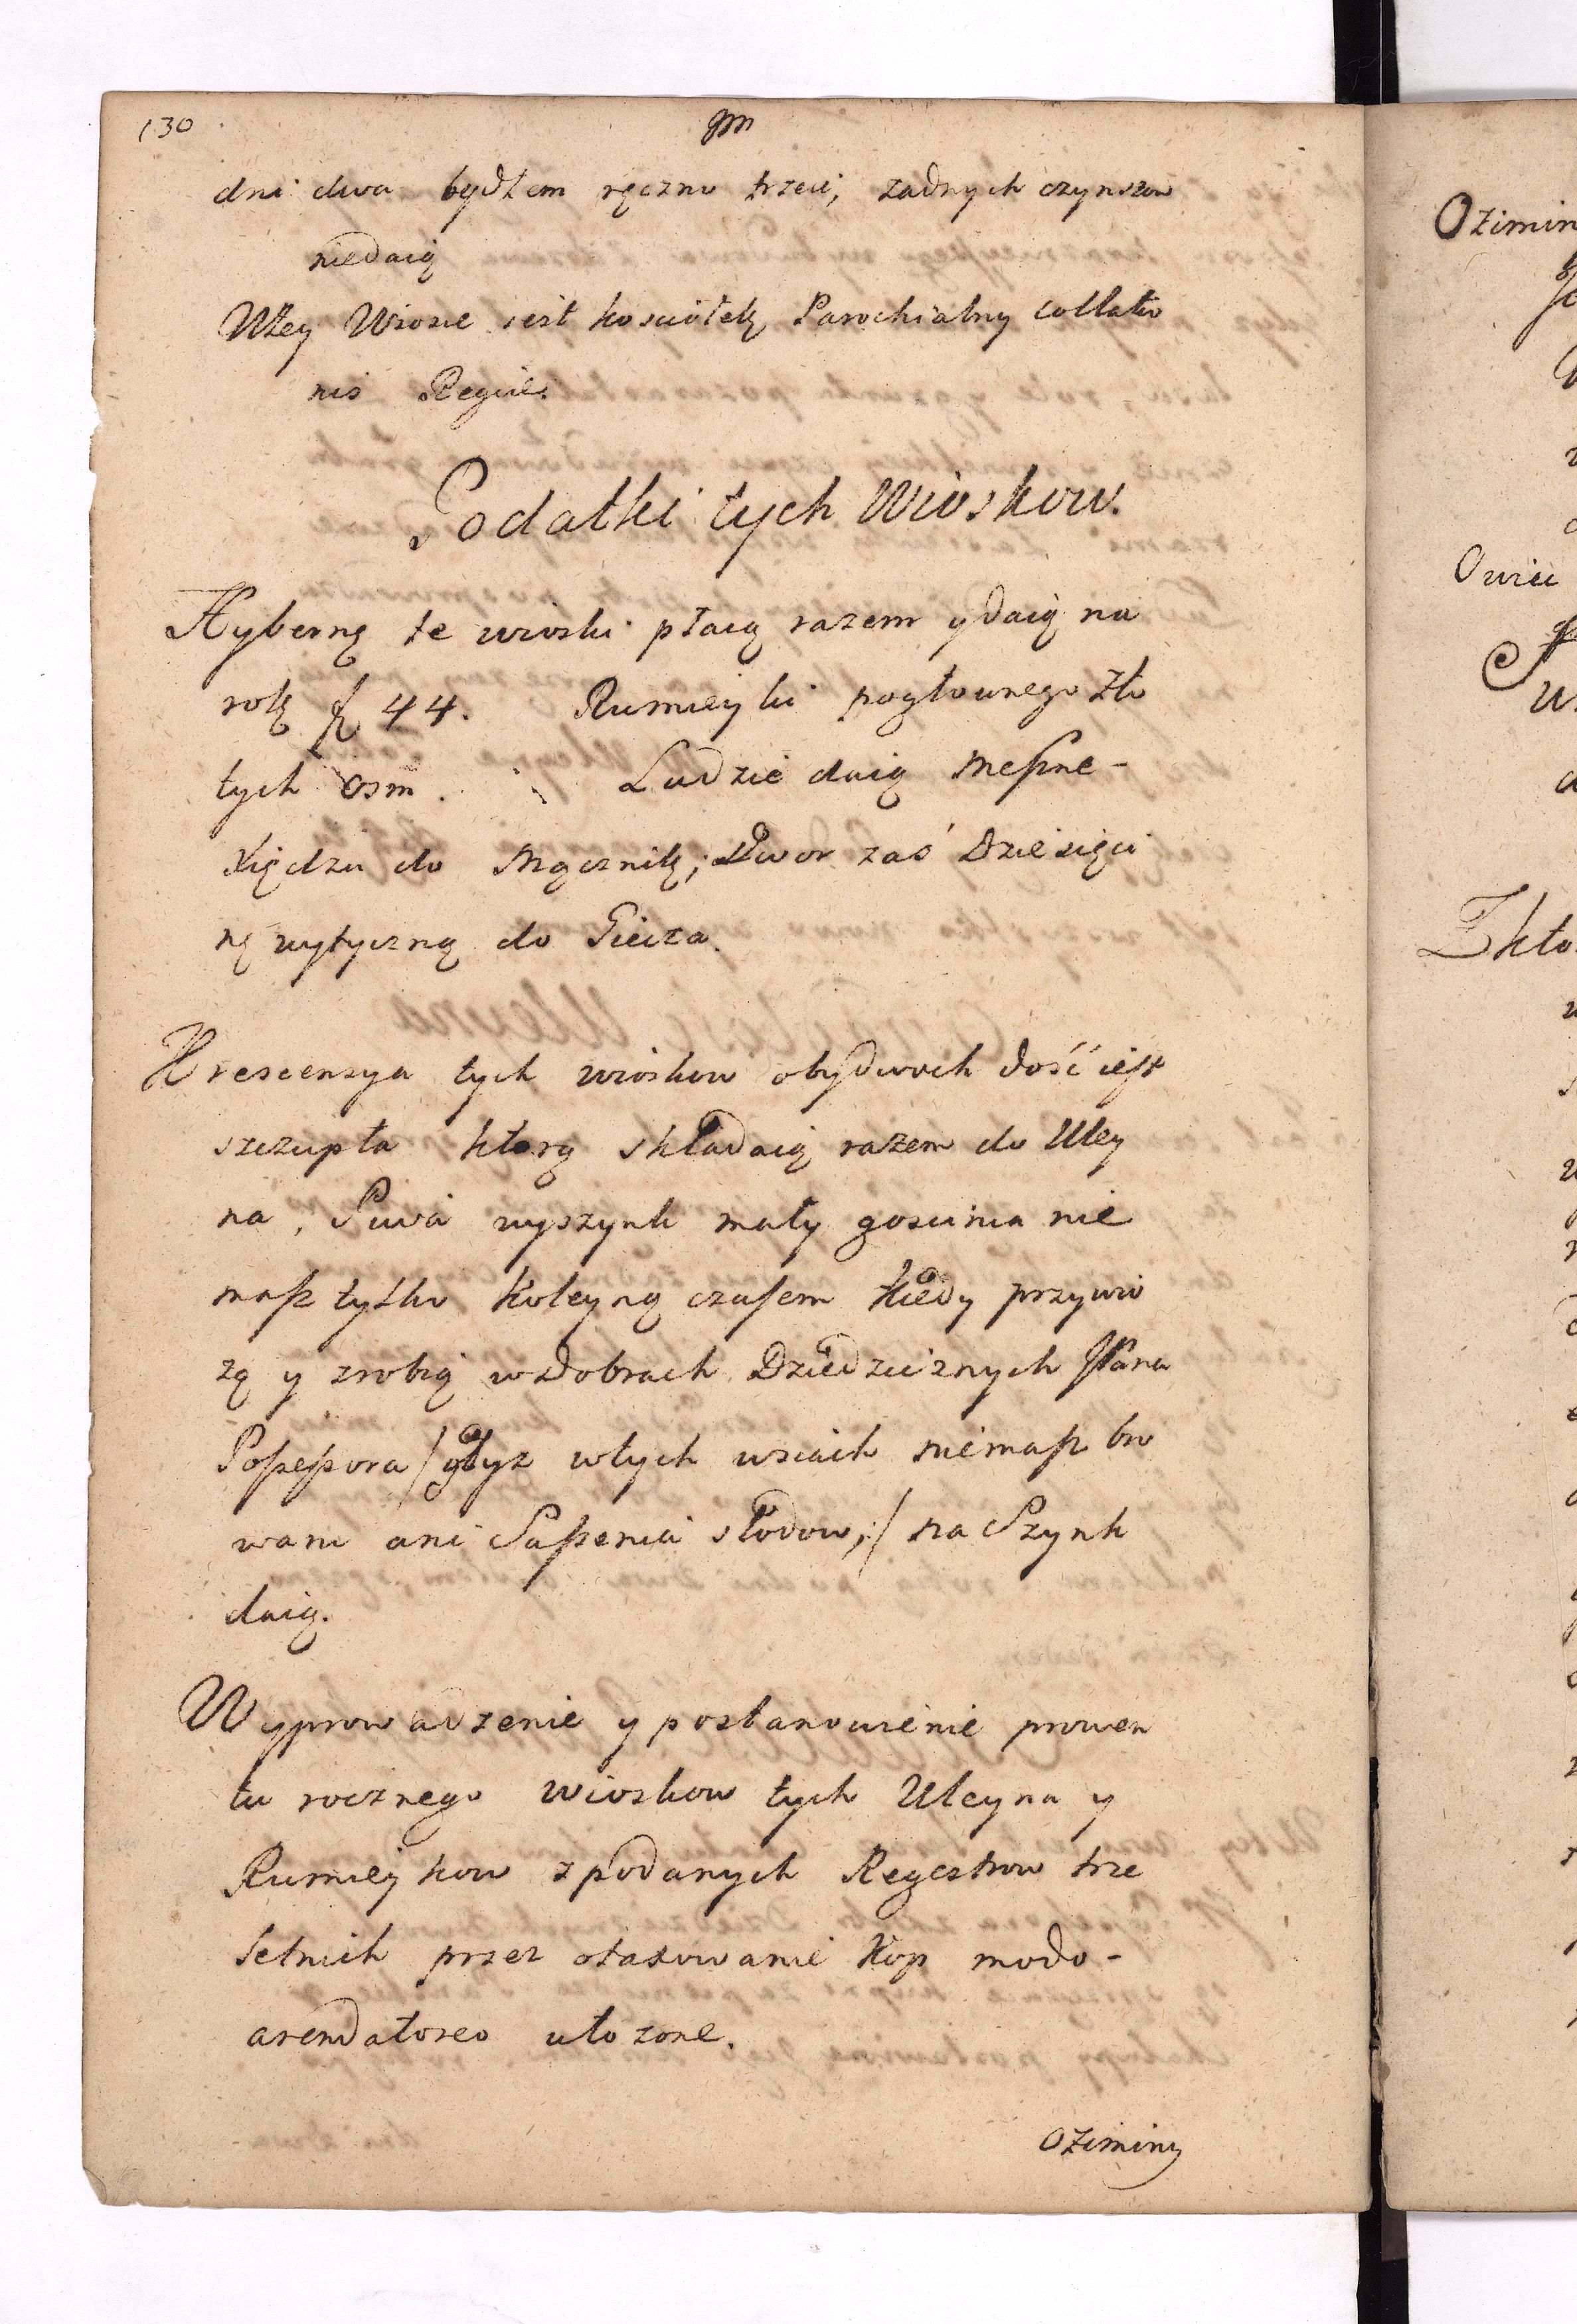 130
dni dwa bydłem ręczno trzeci, zadnych czynszow
niedaią
Wtey Wiosce iest kosciołek Parochialny collatio
nis Regiae.
Podatki tych Wioskow.
Hyberną te wioski płacą razem y daią na
rok fl 44. Rumieyki pogłownego zło
tych osm. Ludzie daią Meszne-
Xiędzu do Mącznik; Dwor zaś Dziesięci
nę wytyczną do Giecza.
Krescensya tych wioskow obydwoch dość iest
szczupła ktorą składaią razem do Uley
na. Piwa wyszynk mały goscinca nie
masz tylko koleyną czasem kiedy przywio
zą y zrobią w Dobrach Dziedzicznych JPana
/gdyz wtych wsiach niemasz bro
waru ani słodow;/ na Szynk
daią.
Wyprowadzenie y postanowienie prowen
tu rocznego wioskow tych Uleyna y
Rumieykow z podanych Regestrow trze
letnich przez otaxowanie Kop modo-
arendatoreo ułozone.
Oziminy
Ozimin
Owiec